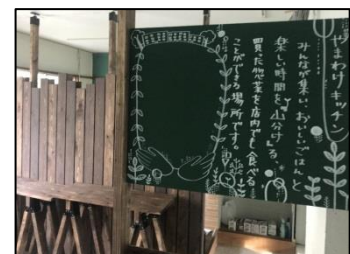 やまわけ キッチン
みんなが集い、おいしいごはんと
楽しい時間を、"山分け"する。
買った惣菜を店内でも食べる
ことができる場所です。